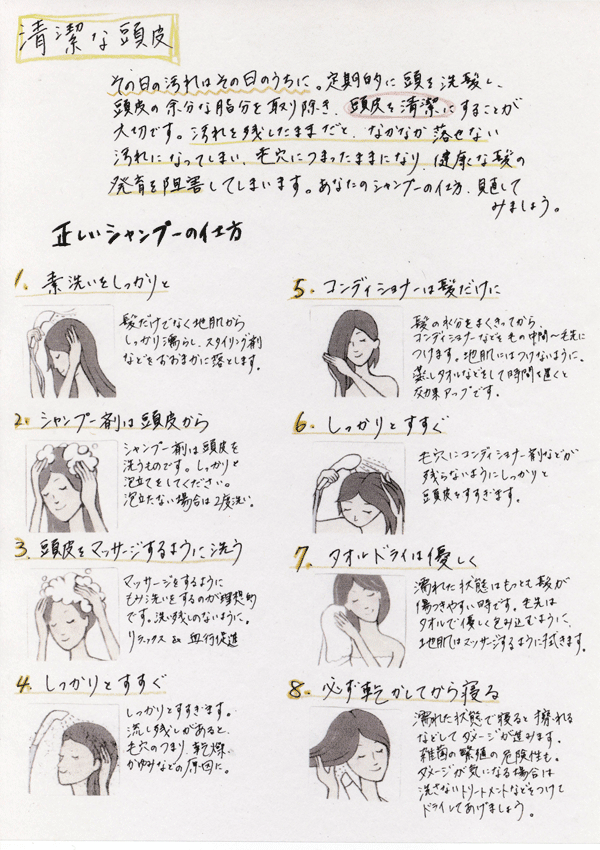 清潔な頭皮
その日の汚れはその日のうちに。定期的に頭を洗髪し、
頭皮の余分な脂分を取り除き、頭皮を清潔にすることが
大切です。汚れを残したままだと、なかなか落せない
汚れになってしまい、毛穴につまったままになり、健康な髪の
発育を阻害してしまいます。あなたのシャンプーの仕方、見直して
みましょう。
正しいシャンプーの仕方
1. 素洗いをしっかりと
髪だけでなく地肌から
しっかり濡らし、スタイリング剤
などをおおまかに落とします。
2. シャンプー剤は頭皮から
シャンプー剤は頭皮を
洗うものです。しっかりと
泡立てをしてください。
泡立たない場合は2度洗い。
3. 頭皮をマッサージするように洗う
マッサージをするように
もみ洗いをするのが理想的
です。洗い残しのないように。
リラックス & 血行促進
4. しっかりとすすぐ
しっかりとすすぎます。
流し残しがあると、
毛穴のつまり、乾燥、
かゆみなどの原因に。
5. コンディショナーは髪だけに
髪の水分をよくきってから、
コンディショナーなどを毛の中間〜毛先に
つけます。地肌にはつけないように。
蒸しタオルなどをして時間を置くと
効果アップです。
6. しっかりとすすぐ
毛穴にコンディショナー剤などが
残らないようにしっかりと
頭皮をすすぎます。
7. タオルドライは優しく
濡れた状態はもっとも髪が
傷つきやすい時です。毛先は
タオルで優しく包み込むように、
地肌はマッサージするように拭きます。
8. 必ず乾かしてから寝る
濡れた状態で寝ると擦れる
などしてダメージが進みます。
雑菌の繁殖の危険性も。
ダメージが気になる場合は
洗さないトリートメントなどをつけて
ドライしてあげましょう。